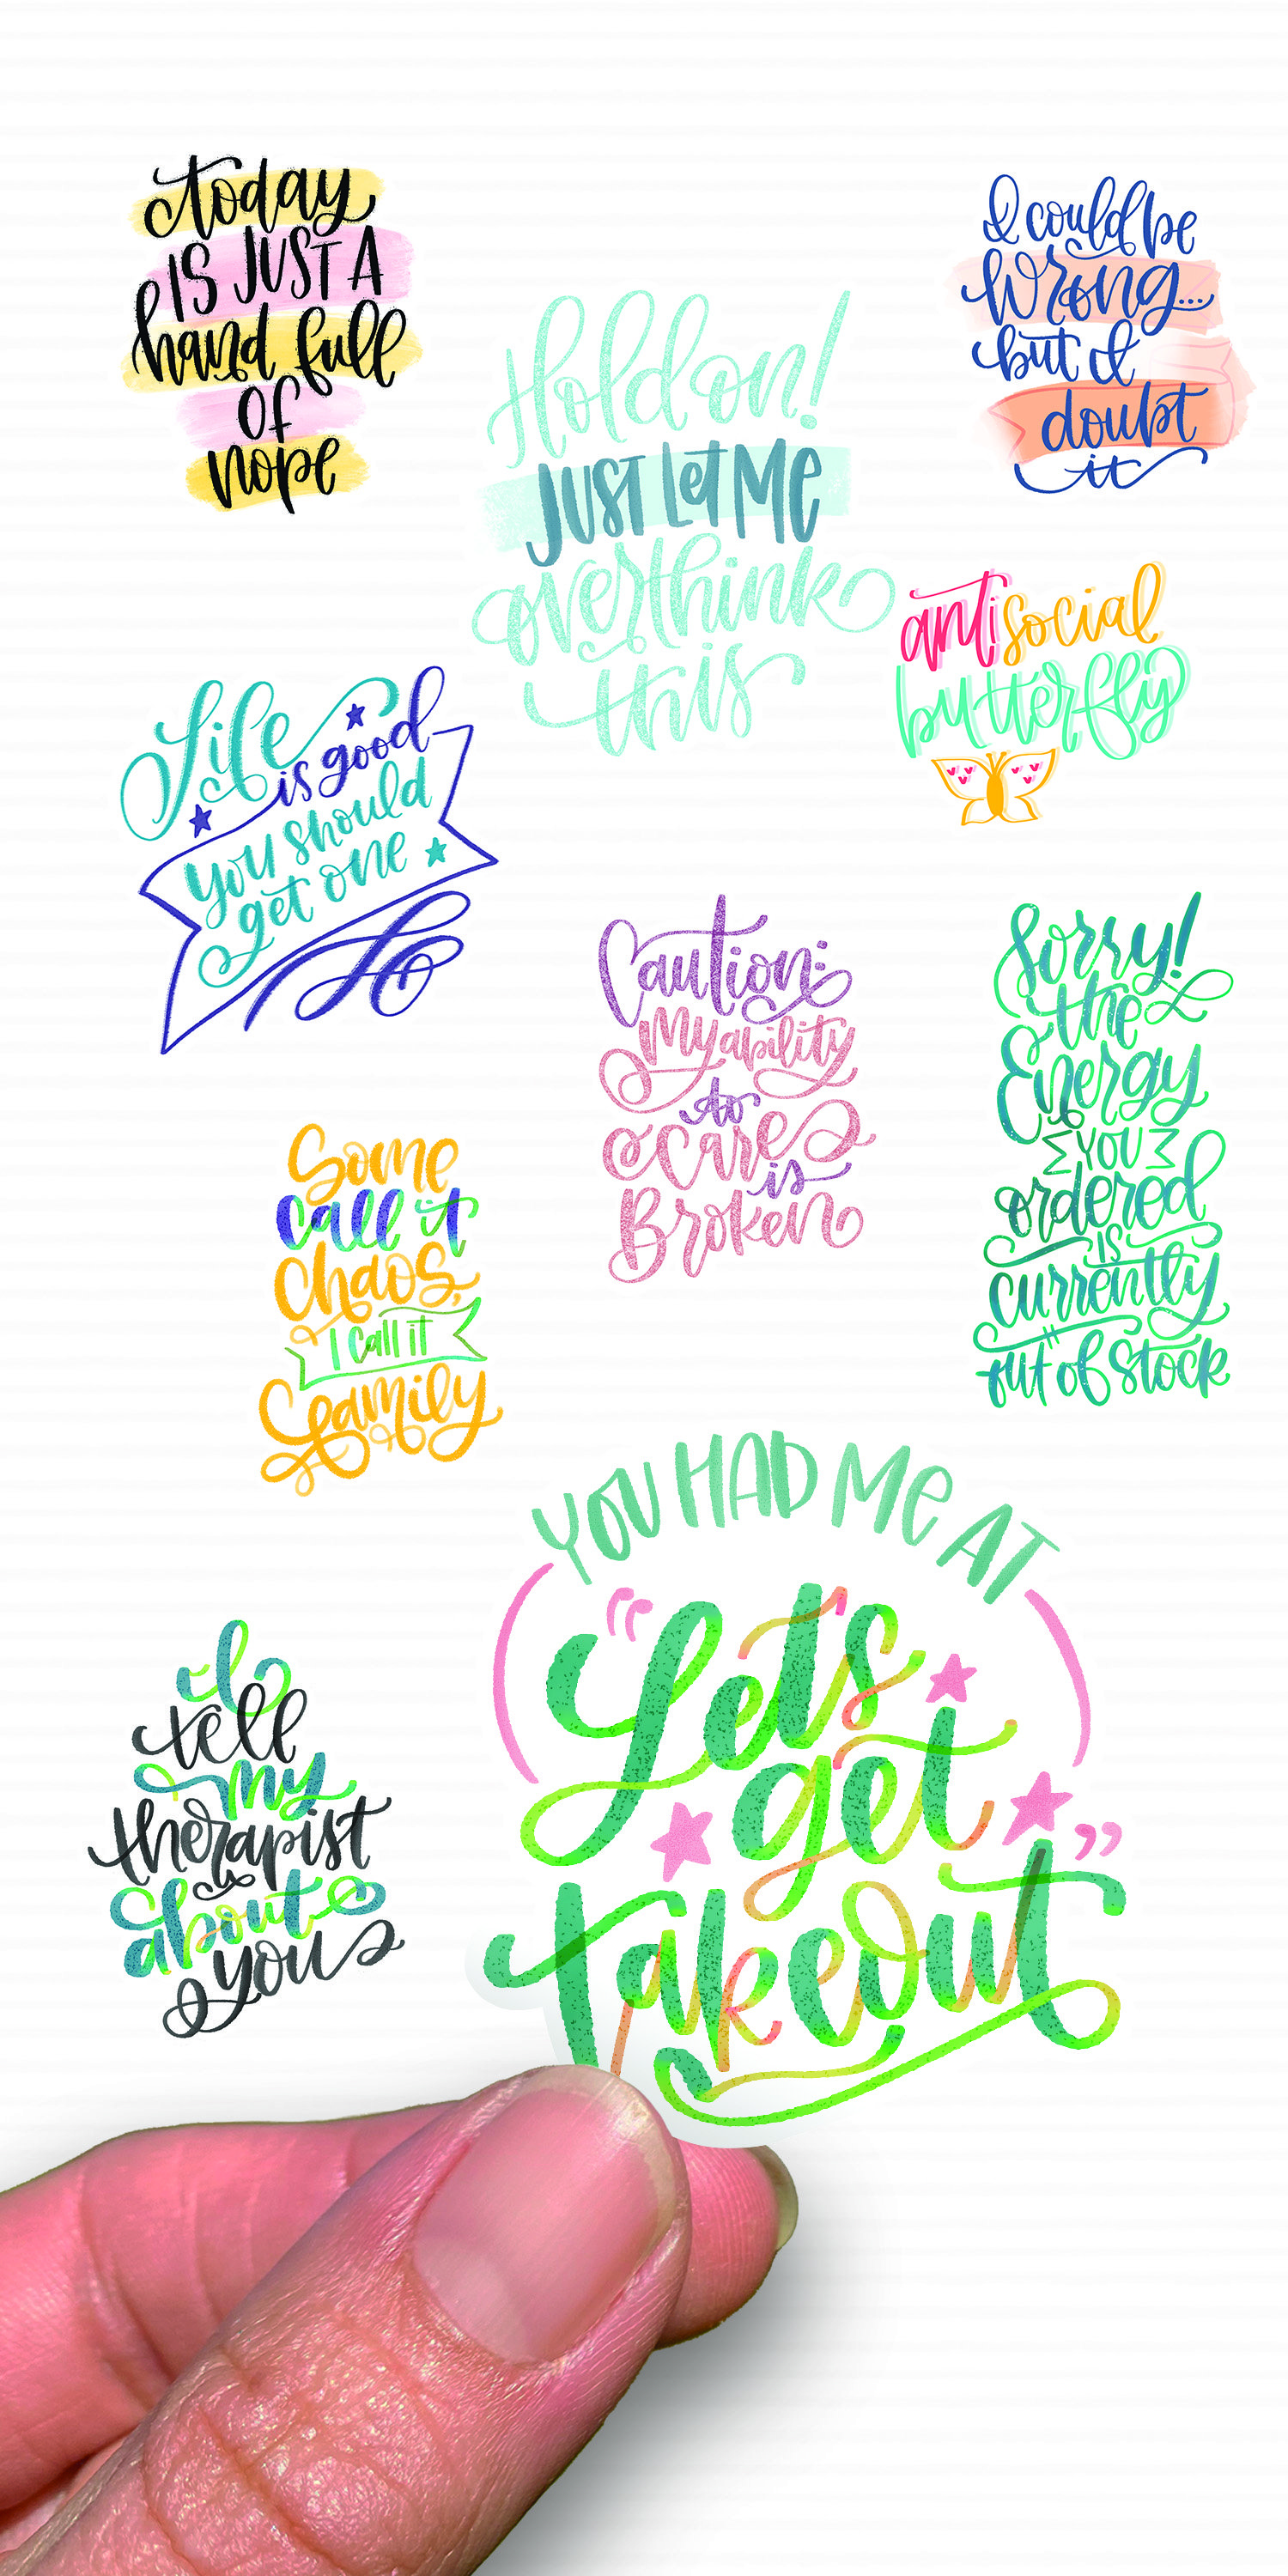 today
IS JUST A
hand full
of
nope
I could be
wrong...
but I
doubt
it
Hold on!
JUST Let Me
overthink
this
antisocial
butterfly
Life
is good
you should
get one
Caution:
My ability
to
care
is
Broken
Sorry!
the
Energy
YOU
ordered
is
currently
out of stock
Some
call it
Chaos,
I Call it
Family
YOU HAD Me AT
"Let's
get
takeout"
I
tell
my
therapist
about
you